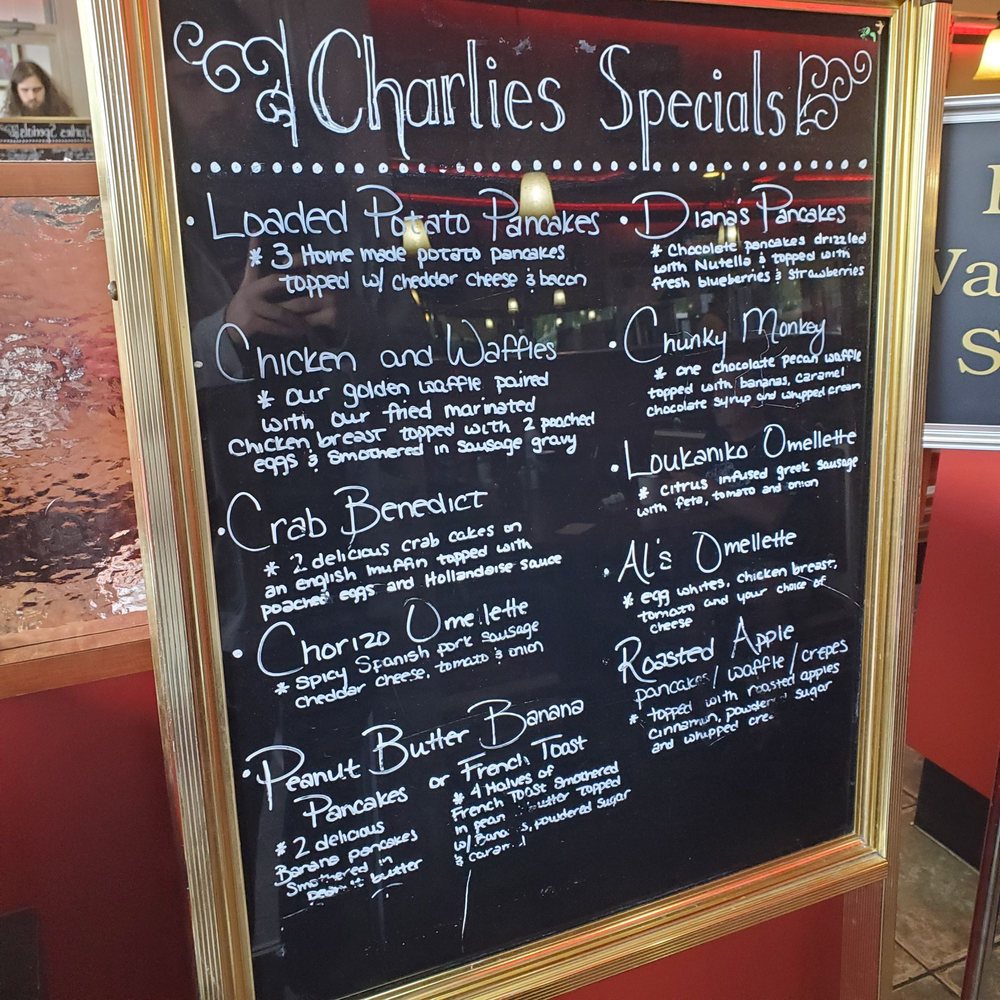 Charlies Specials
• Loaded Potato Pancakes
* 3 Home made potato pancakes
topped w/ cheddar cheese & bacon
• Chicken and Waffles
* our golden waffle paired
with our fried marinated
chicken breast topped with 2 poached
eggs & smothered in sausage gravy
• Crab Benedict
* 2 delicious crab cakes on
an english muffin topped with
poached eggs and Hollandaise sauce
• Chorizo Omellette
* spicy Spanish pork sausage
cheddar cheese, tomato & onion
• Peanut Butter Banana
Pancakes or French Toast
* 2 delicious
Banana pancakes
Smothered in
peanut butter
* 4 Halves of
French Toast smothered
in butter topped
w/ powdered sugar
&
• Diana's Pancakes
* Chocolate pancakes drizzled
with Nutella & topped with
fresh blueberries & strawberries
• Chunky Monkey
* one chocolate pecan waffle
topped with bananas, caramel
chocolate syrup and whipped cream
• Loukaniko Omellette
* citrus infused greek sausage
with feta, tomato and onion
• Al's Omellette
* egg whites, chicken breast,
tomato and your choice of
cheese
Roasted Apple
pancakes/waffle/crepes
* topped with roasted apples
cinnamon, powdered sugar
and whipped
Va
S